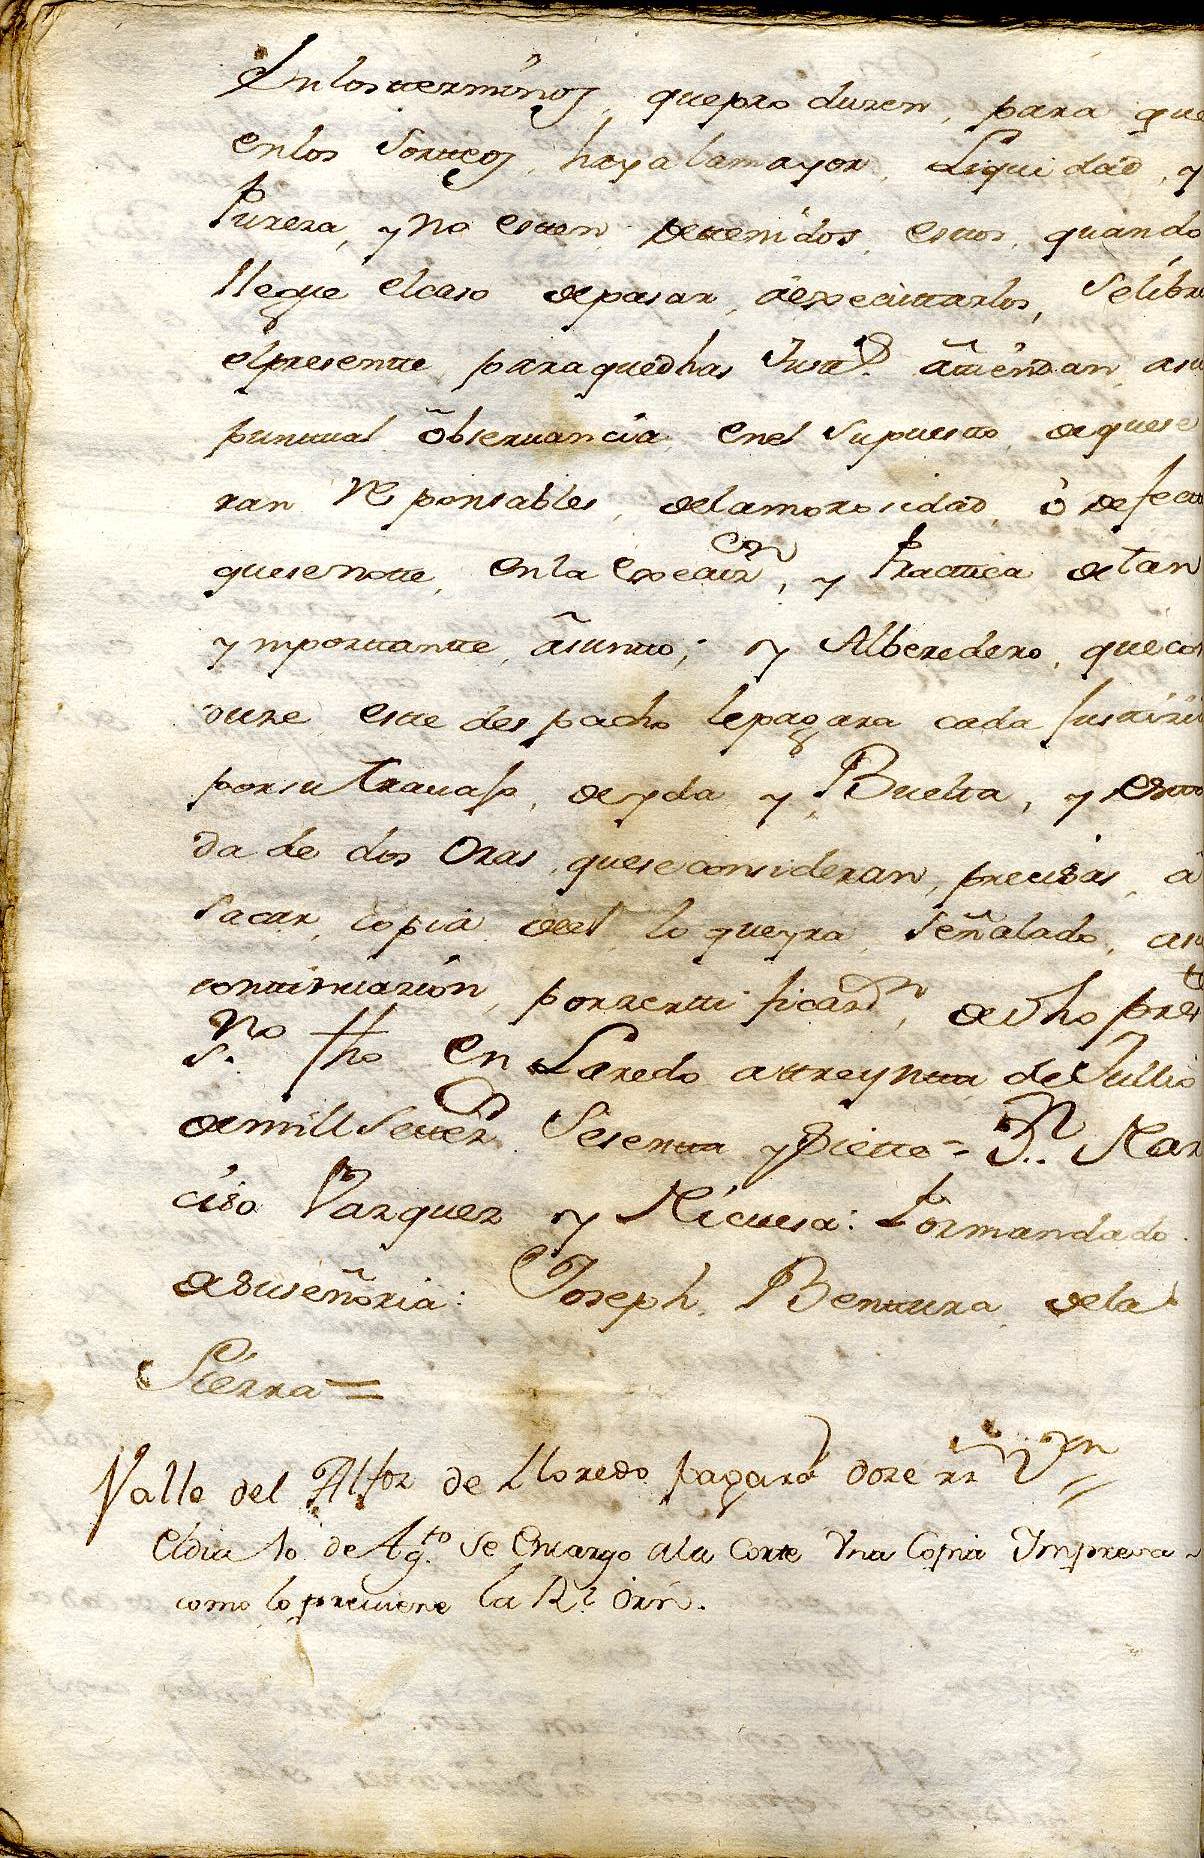 En los terminos, que pro duzen, para que
en los Sorteos, haya la mayor, Liqui dad, y
Pureza, y no esten, dettenidos, estos, quando
llegue el caso de pasar, aexecuttarlos, Se libra
el presentte, para que dhas Justas. attiendan, asu
puntual observancia, en el Supuesto, de que se
ran res ponsables, de la morosidad, ô defectto
que se notte, en la Execuzn, y Practtica de tan
ymportantte, asuntto; y Al Veredero, que con
duze este des pacho le pagara cada
por su travajo, de yda y Buelta, y
da de dos Oras, que se consideran, precisas, a
sacar, copia de el lo que yra, Señalado, asu
conttinuazion, por zertti ficazn, de dho preste
sno fho en Laredo a ttreyntta de Jullio
de mill Settezs Sesentta y Siette = Dn Nar
ciso Vazquez y Nicuesa: Por mandado
de su señoria: Joseph Benttura de la
Sierra =
Valle del Alfoz de Lloredo pagará doze rrs Vn
el dia 10 de Agto se Encargo a la Corte Una Copia Impresa
como lo previene la Rl Orn.